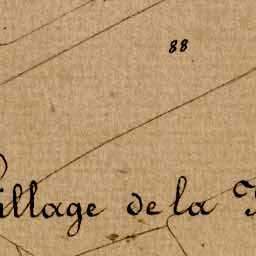 88
Village de la